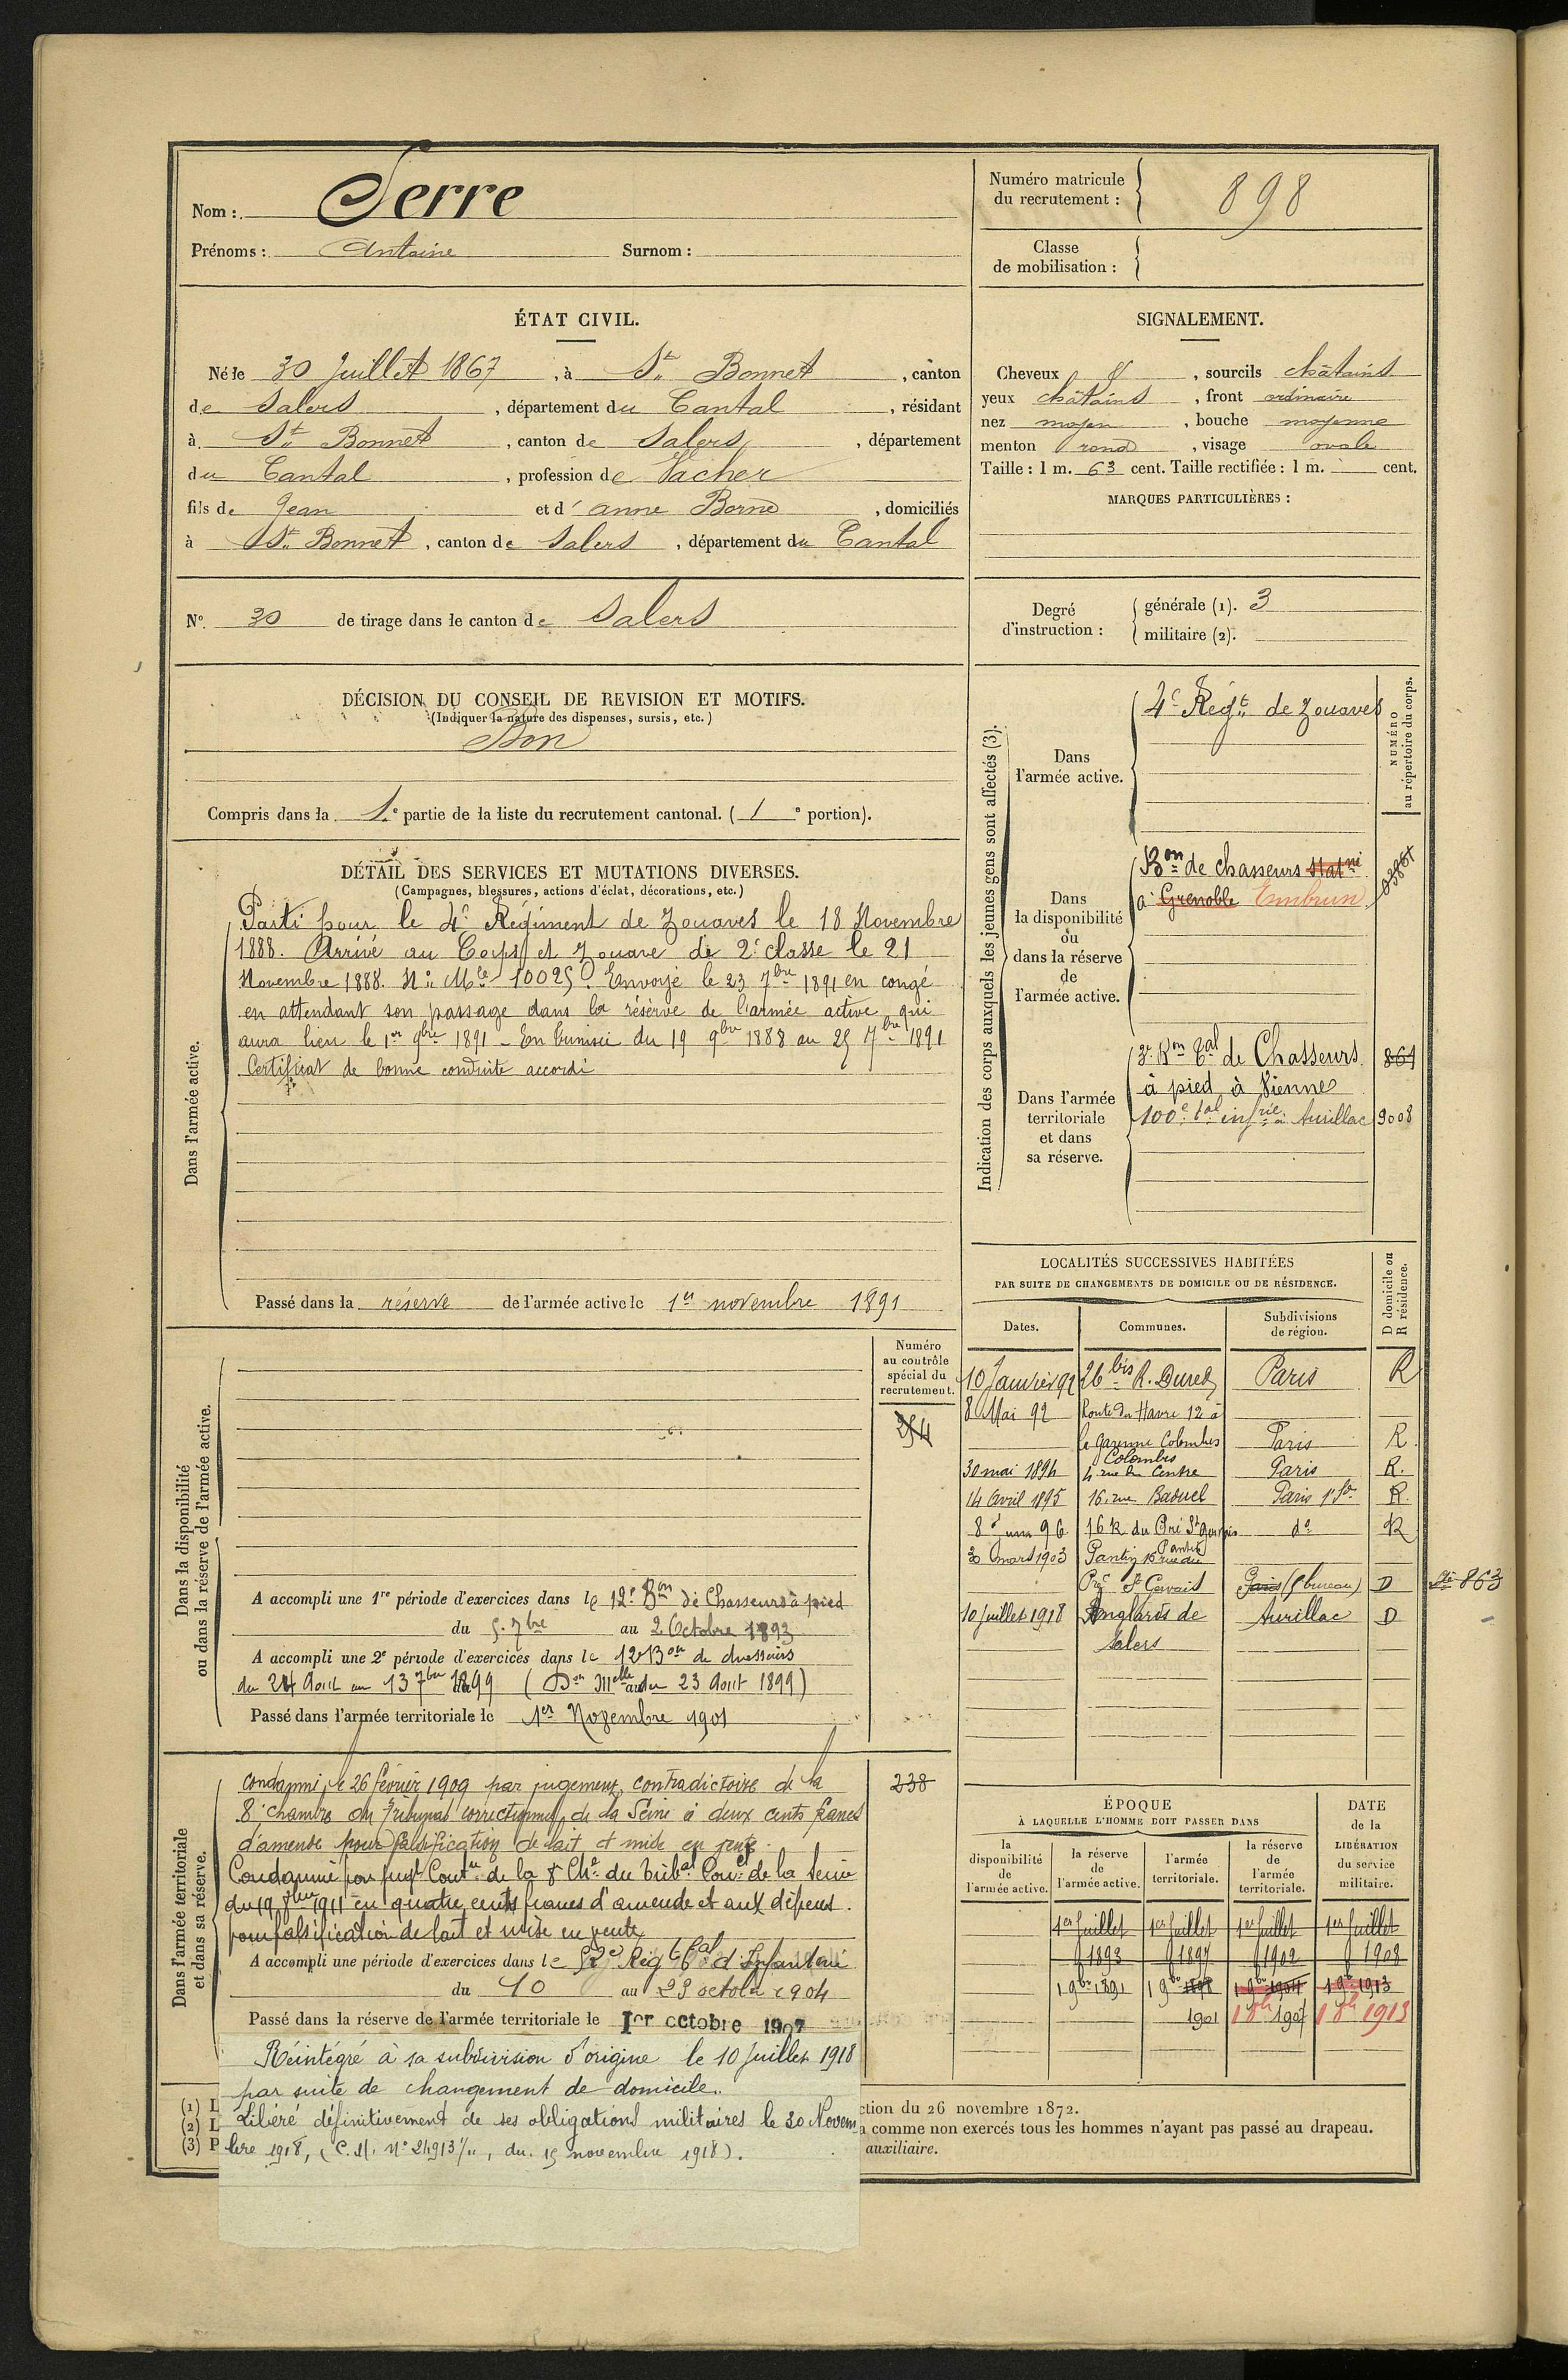 Nom : Serre
Prénoms : Antoine Surnom :
Numéro matricule
du recrutement : 898
Classe
de mobilisation :
ÉTAT CIVIL.
Né le 30 Juillet 1867, à St Bonnet, canton
de Salers, département du Cantal, résidant
à St Bonnet, canton de Salers, département
du Cantal, profession de Vacher
fils de Jean et d'anne Borne, domiciliés
à St Bonnet, canton de Salers, département du Cantal
SIGNALEMENT.
Cheveux &, sourcils châtains
yeux châtains, front ordinaire
nez moyen, bouche moyenne
menton rond, visage ovale
Taille : 1 m. 63 cent. Taille rectifiée : 1 m. cent.
MARQUES PARTICULIÈRES :
No. 30 de tirage dans le canton de Salers
Degré
d'instruction :
générale (1). 3
militaire (2).
DÉCISION DU CONSEIL DE REVISION ET MOTIFS.
(Indiquer la nature des dispenses, sursis, etc.)
Bon
Compris dans la 1e partie de la liste du recrutement cantonal. (1e portion).
DÉTAIL DES SERVICES ET MUTATIONS DIVERSES.
(Campagnes, blessures, actions d'éclat, décorations, etc.)
Dans l'armée active.
Parti pour le 4e Régiment de Zouaves le 18 Novembre
1888. Arrivé au Corps et Zouave de 2e classe le 21
Novembre 1888. No Mle 10025. Envoyé le 23 7bre 1891 en congé
en attendant son passage dans la réserve de l'armée active qui
aura lieu le 1er 9bre 1891 - En Tunisie du 19 9bre 1888 au 25 7bre 1891
Certificat de bonne conduite accordé
Passé dans la réserve de l'armée active le 1er novembre 1891
Indication des corps auxquels les jeunes gens sont affectés (3).
NUMÉRO
au répertoire du corps.
Dans
l'armée active.
4e Régt de Zouaves
Dans
la disponibilité
ou
dans la réserve
de
l'armée active.
Bon de chasseurs statné
à Grenoble Embrun
Dans l'armée
territoriale
et dans
sa réserve.
2e Bon tal de Chasseurs 864
à pied à Vienne
100e tal infrie à Aurillac 9008
LOCALITÉS SUCCESSIVES HABITÉES
PAR SUITE DE CHANGEMENTS DE DOMICILE OU DE RÉSIDENCE.
D domicile ou
R résidence.
Dates. Communes. Subdivisions
de région.
10 Janvier 92 26 bis R. Duret Paris R
8 Mai 92 Route du Havre 12 à
la Garenne Colombes Paris R
30 mai 1894 Colombes
4 rue du Centre Paris R.
14 Avril 1895 16, rue Paris R.
96 16 R. du Pré St Gervais do R
Pantin
30 mars 1903 Pantin 16 rue du
Pré St Gervais Paris (bureau) D
863
10 juillet 1918 Anglards de Aurillac D
Salers
Dans la disponibilité
ou dans la réserve de l'armée active.
Numéro
au contrôle
spécial du
recrutement.
354
A accompli une 1re période d'exercices dans le 12e Bon de Chasseurs à pied
du 5 7bre au 2 Octobre 1893
A accompli une 2e période d'exercices dans le 12e Bon de chasseurs
du 24 Aout au 13 7bre 1899 (Don Melle du 23 Aout 1899)
Passé dans l'armée territoriale le 1er Novembre 1901
Dans l'armée territoriale
et dans sa réserve.
238
condamné le 26 février 1909 par jugement contradictoire de la
8e chambre du Tribunal correctionnel de la Seine à deux cents francs
d'amende pour falsification de lait et mise en vente.
Condamné par jugt Contre de la 8 Che du Tribal Correl de la Seine
du 19 1911 en quatre cents francs d'amende et aux dépens.
pour falsification de lait et mise en vente
A accompli une période d'exercices dans le Régt tal d'Infanterie
du 10 au 23 octobre 1904
Passé dans la réserve de l'armée territoriale le 1er octobre 1907
Réintégré à sa subdivision d'origine le 10 Juillet 1918
par suite de changement de domicile.
Libéré définitivement de ses obligations militaires le 30 Novem
bre 1918, (C. M. No 24913 1/11, du 15 novembre 1918).
ÉPOQUE
À LAQUELLE L'HOMME DOIT PASSER DANS
DATE
de la
LIBÉRATION
du service
militaire.
la
disponibilité
de
l'armée active.
la réserve
de
l'armée active.
l'armée
territoriale.
la réserve
de
l'armée
territoriale.
1er Juillet 1er Juillet 1er Juillet 1er Juillet
1893 1897 1902 1908
1 9bre 1891 1 9bre 1898 1 9bre 1904 1 9bre 1913
1901 1 8bre 1907 1 8bre 1913
(1) L
(2) L
(3) P
ction du 26 novembre 1872.
a comme non exercés tous les hommes n'ayant pas passé au drapeau.
auxiliaire.